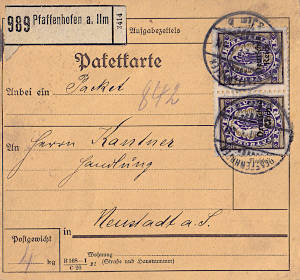 989 Pfaffenhofen a. Ilm
Aufgabezettels
Paketkarte
Anbei ein Packet
842
An Herrn Kantner
Handlung
in Neustadt a. S.
Postgewicht
4 kg
Wohnung
(Straße und Hausnummer)